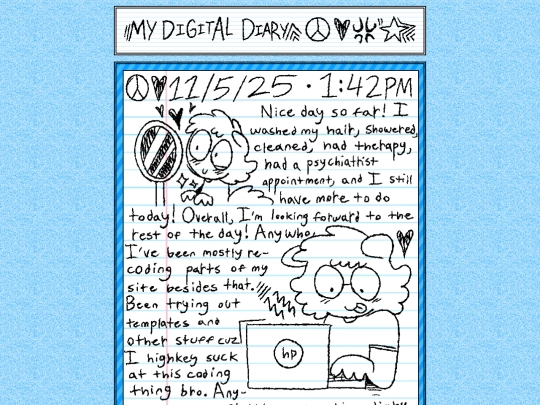 MY DIGITAL DIARY
11/5/25 · 1:42PM
Nice day so far! I
washed my hair, showered,
cleaned, had therapy,
had a psychiatrist
appointment, and I still
have more to do
today! Overall, I'm looking forward to the
rest of the day! Anywho,
I've been mostly re-
coding parts of my
site besides that.
Been trying out
templates and
other stuff cuz
I highkey suck
at this coding
thing bro. Any-
hp